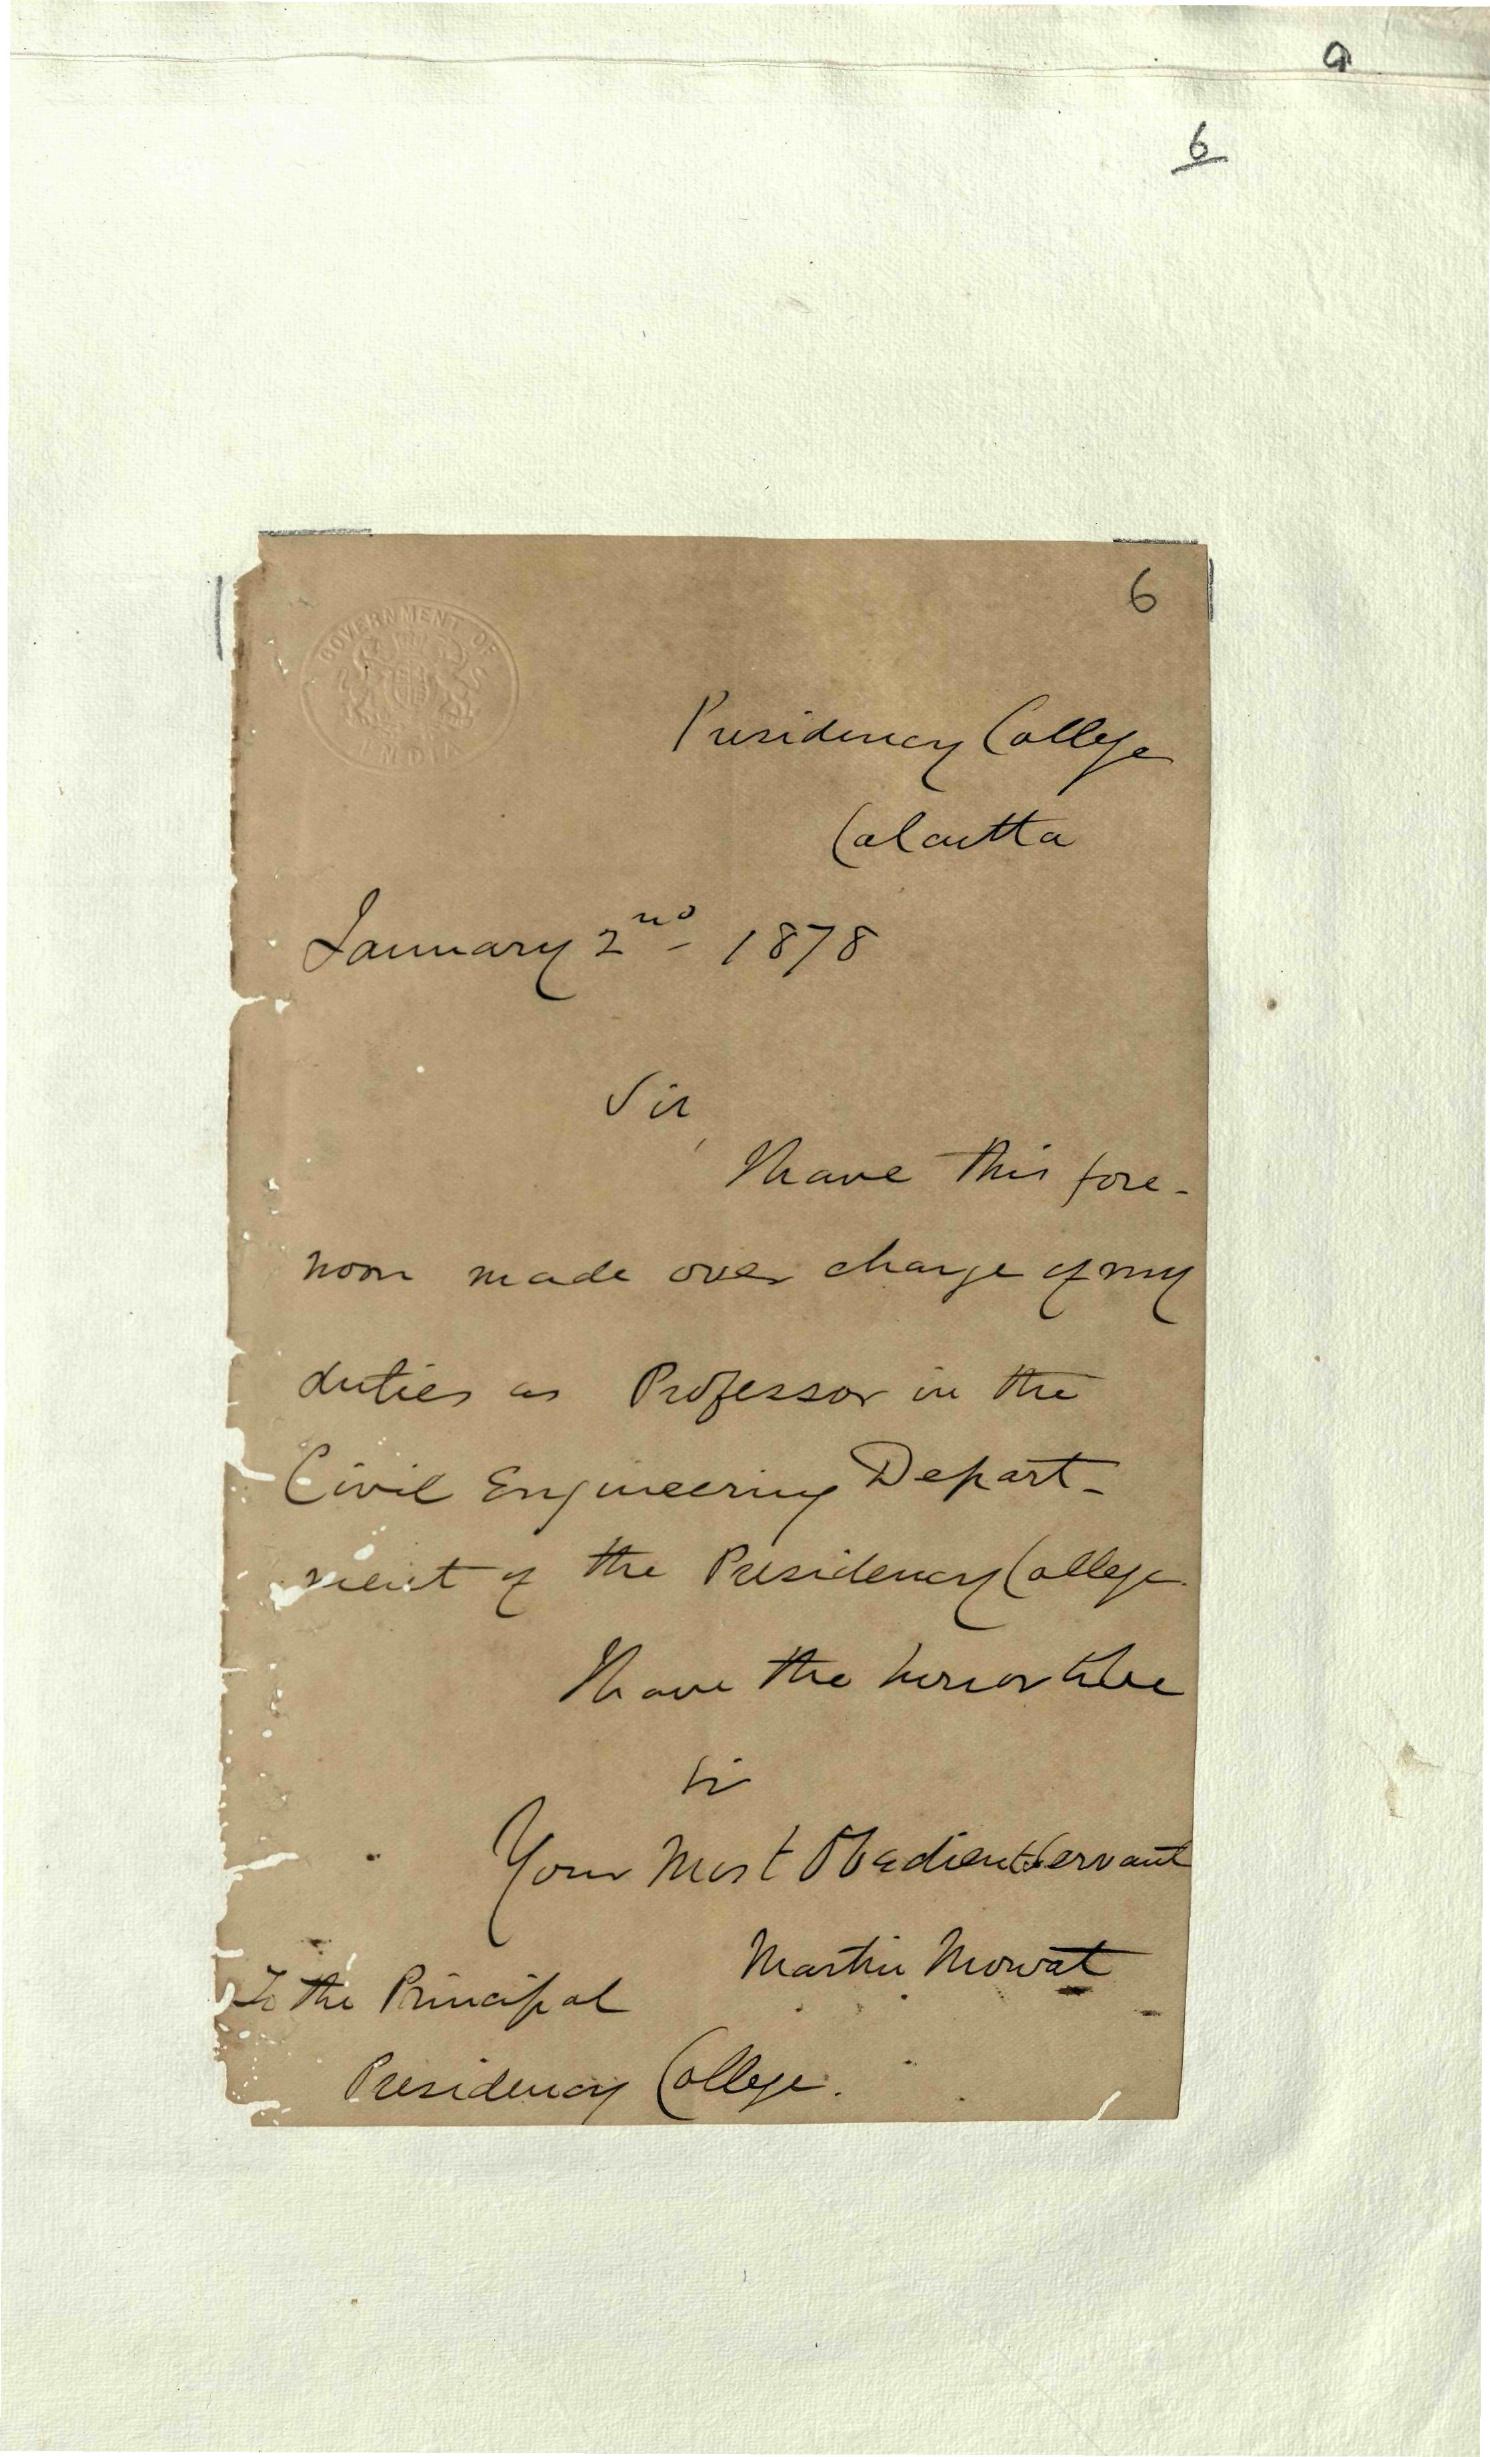 9
6
6
GOVERNMENT OF
INDIA
Presidency College
Calcutta
January 2nd 1878
Sir,
I have this fore-
noon made over charge of my
duties as Professor in the
Civil Engineering Depart-
ment of the Presidency College.
I have the honor to be
Sir
Your Most Obedient Servant
Martin Mowat
To the Principal
Presidency College.